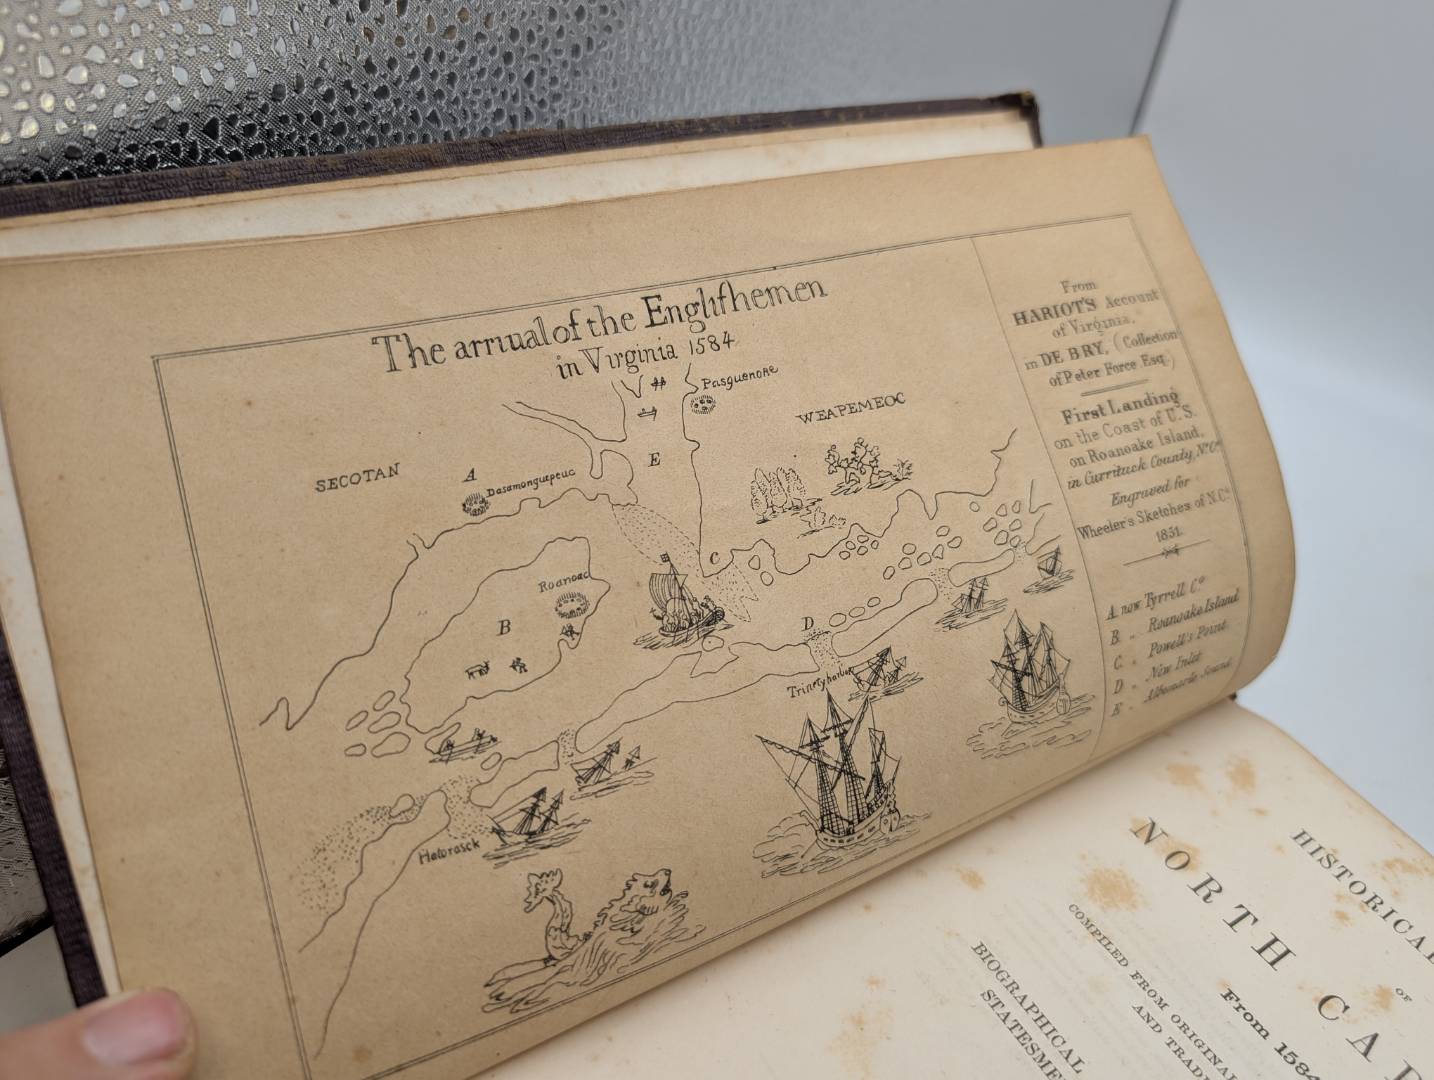 The arriual of the Engliſhemen
in Virginia 1584
Pasquenoke
WEAPEMEOC
SECOTAN
A
Dasamonquepeuc
E
C
Roanoac
B
D
Trinety harbor
Hatorasck
From
HARIOT'S Account
of Virginia,
in DE BRY, (Collection
of Peter Force Esq.)
First Landing
on the Coast of U.S.
on Roanoake Island,
in Currituck County, N.Ca
Engraved for
Wheeler's Sketches of N.Ca
1851.
A now Tyrrell Co
B " Roanoake Island
C " Powell's Point
D " New Inlet
E " Albemarle Sound
HISTORICAL
OF
NORTH CAR
From 1584
COMPILED FROM ORIGINAL
AND TRADI
BIOGRAPHICAL
STATESME